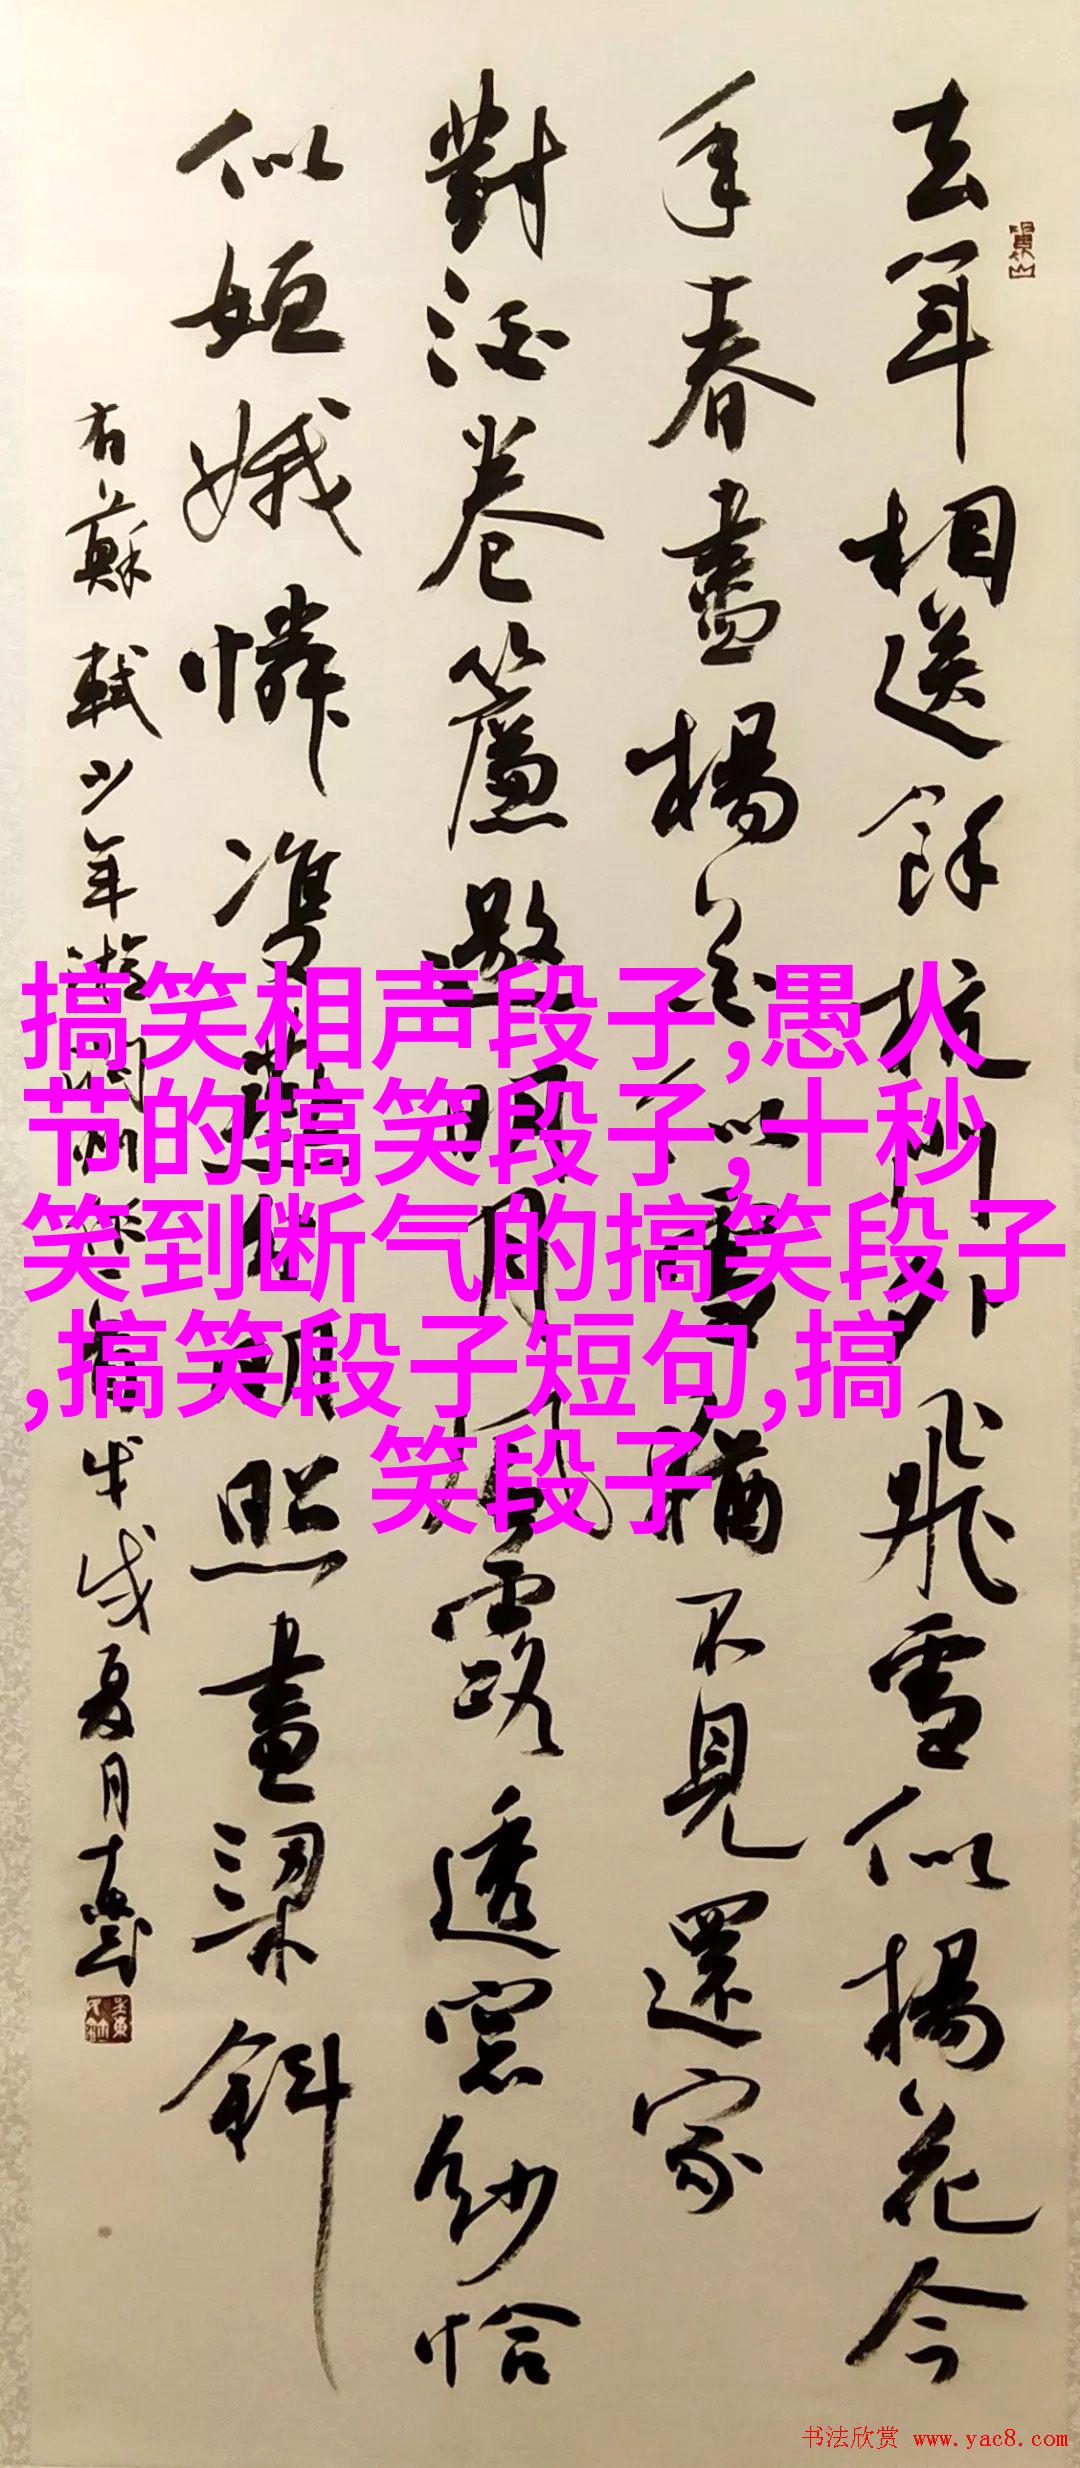 去年相送餘杭门外飛雪似楊花今
年春盡楊花似雪猶不見還家
對酒卷簾邀明月風露透窓紗恰
似姮娥憐雙燕分明照畫梁斜
右蘇軾少年游潤州作
戊戌夏月
搞笑相声段子,愚人
节的搞笑段子,十秒
笑到断气的搞笑段子
,搞笑段子短句,搞
笑段子
书法欣赏 www.yac8.com